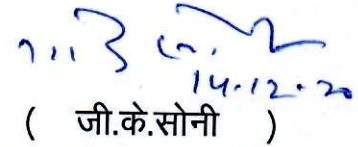 14.12.20
( जी.के.सोनी )